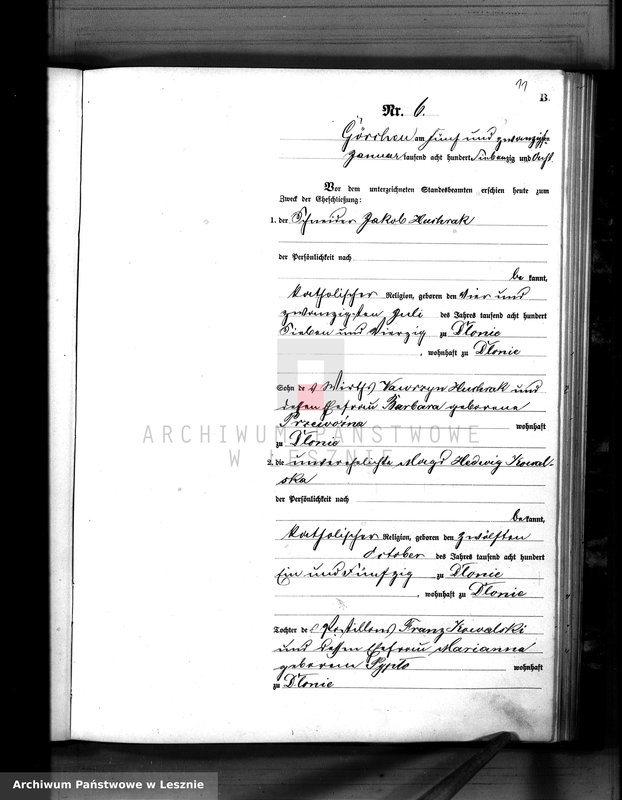 11
B.
Nr. 6.
Görchen am fünf und zwanzigsten
Januar tausend acht hundert siebenzig und Acht
Vor dem unterzeichneten Standesbeamten erschien heute zum
Zweck der Eheschließung:
1. der Schneider Jakob
der Persönlichkeit nach
be kannt,
katholischer Religion, geboren den vier und
zwanzigsten Juli des Jahres tausend acht hundert
Sieben und Vierzig zu Dlonie
, wohnhaft zu Dlonie
Sohn des Wirths Wawrzyn und
dessen Ehefrau Barbara geborene
wohnhaft
zu Dlonie
2. die unverehelichte Magd Hedwig Kowal-
ska
der Persönlichkeit nach
be kannt,
katholischer Religion, geboren den zwölften
October des Jahres tausend acht hundert
Ein und Fünfzig zu Dlonie
, wohnhaft zu Dlonie
Tochter des Postillons Franz Kowalski
und dessen Ehefrau Marianna
geborene wohnhaft
zu Dlonie
ARCHIWUM PAŃSTWOWE
W LESZNIE
Archiwum Państwowe w Lesznie